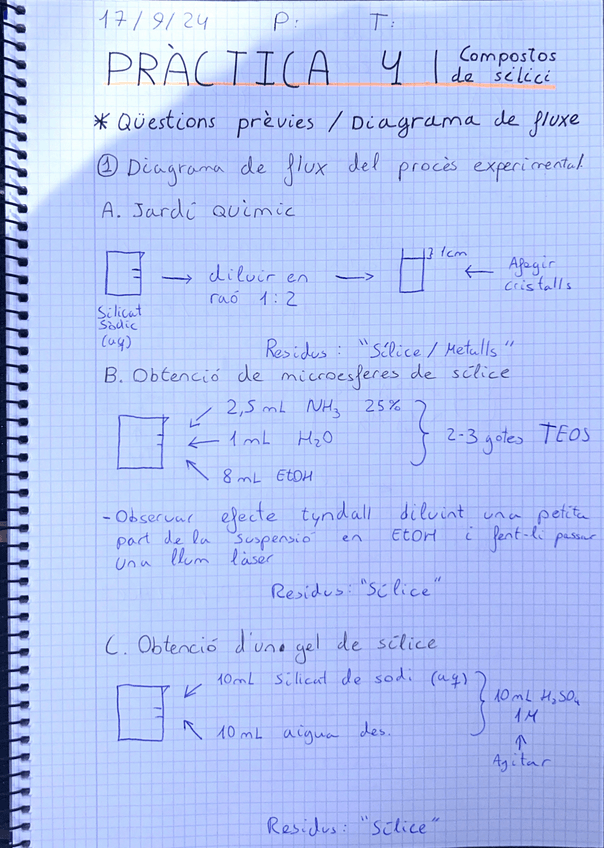 17/9/24 P: T:
PRÀCTICA 4 | Compostos
de silici
* Qüestions prèvies / Diagrama de fluxe
① Diagrama de flux del procès experimental
A. Jardí químic
Silicat
Sòdic
(aq)
→ diluir en
raó 1:2
→ } 1cm ← Afegir
cristalls
Residus: "Sílice / Metalls"
B. Obtenció de microesferes de sílice
2,5 mL NH₃ 25%
1 mL H₂O
8 mL EtOH
} 2-3 gotes TEOS
- Observar efecte tyndall diluint una petita
part de la suspensió en EtOH i fent-li passar
una llum làser
Residus: "Sílice"
C. Obtenció d'un gel de sílice
10mL silicat de sodi (aq)
10 mL aigua des.
} 10 mL H₂SO₄
1M
↑
Agitar
Residus: "Sílice"